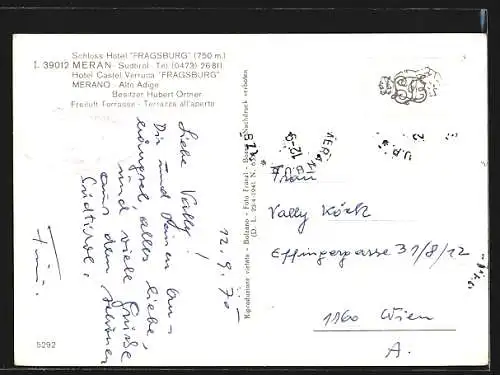 Schloss Hotel "FRAGSBURG" (750 m.)
I. 39012 MERAN - Südtirol - Tel. (0473) 26811
Hotel Castel Verruca "FRAGSBURG"
MERANO - Alto Adige
Besitzer Hubert Ortner
Freiluft Terrasse - Terrazza all'aperto
12.9.75
Liebe Vally!
Dir und Deinen
alles Liebe,
und viele Grüße
aus dem schönen
Südtirol,
5292
Riproduzione vietata - Bolzano - Foto Frasnelli - Bozen - Nachdruck verboten
MERANO
12-9
Frau
Vally Köck
Effingergasse 31/8/12
1160 Wien
A.